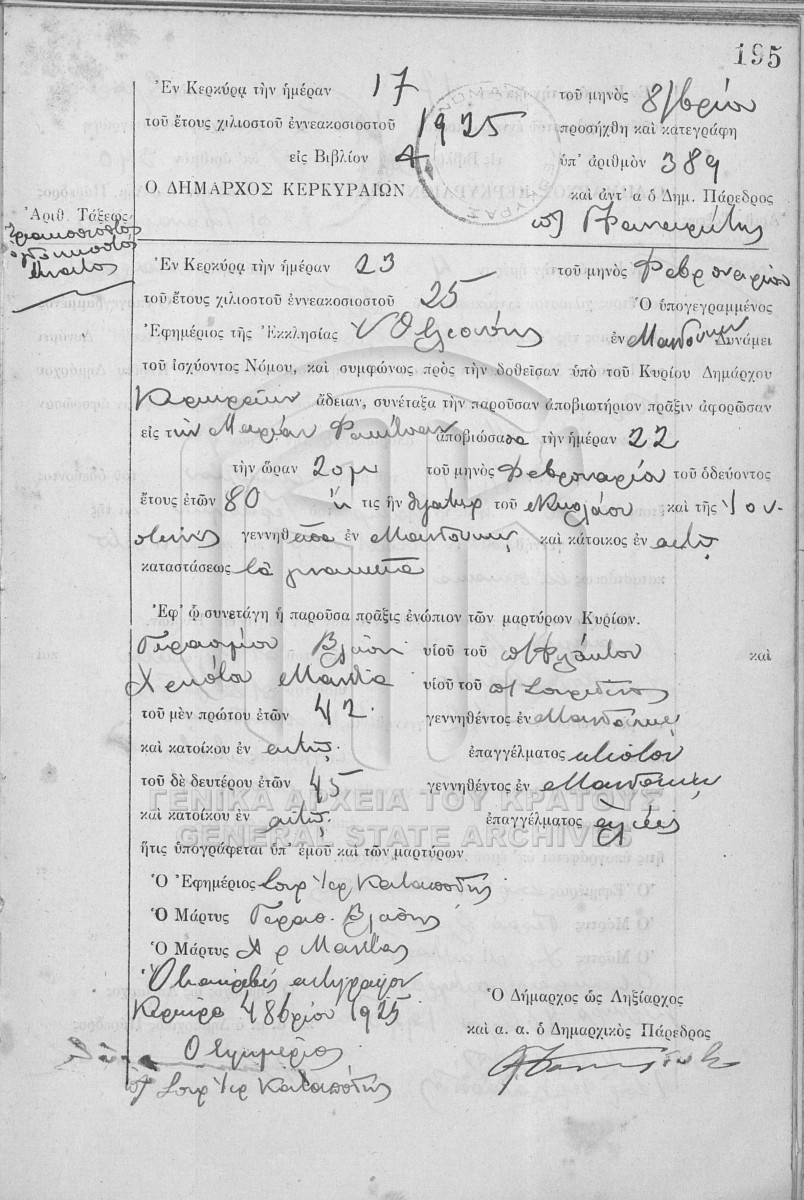 195
Ἐν Κερκύρᾳ τὴν ἡμέραν 17 τοῦ μηνὸς 8/βρίου
τοῦ ἔτους χιλιοστοῦ ἐννεακοσιοστοῦ 1925 προσήχθη καὶ κατεγράφη
εἰς Βιβλίον 4 ὑπ' ἀριθμὸν 389
Ο ΔΗΜΑΡΧΟΣ ΚΕΡΚΥΡΑΙΩΝ καὶ ἀντ' α ὁ Δημ. Πάρεδρος
Ἀριθ. Τάξεως
Τριακοστός
ὀγδοηκοστός
ἔνατος
Ἐν Κερκύρᾳ τὴν ἡμέραν 23 τοῦ μηνὸς Φεβρουαρίου
τοῦ ἔτους χιλιοστοῦ ἐννεακοσιοστοῦ 25 Ὁ ὑπογεγραμμένος
Ἐφημέριος τῆς Ἐκκλησίας ἐν Μαντούκιῳ Δυνάμει
τοῦ ἰσχύοντος Νόμου, καὶ συμφώνως πρὸς τὴν δοθεῖσαν ὑπὸ τοῦ Κυρίου Δημάρχου
Κερκυραίων ἄδειαν, συνέταξα τὴν παροῦσαν ἀποβιωτήριον πρᾶξιν ἀφορῶσαν
εἰς τὴν Μαρίαν ἀποβιώσασα τὴν ἡμέραν 22
τὴν ὥραν 2 μμ τοῦ μηνὸς Φεβρουαρίου τοῦ ὁδεύοντος
ἔτους ἐτῶν 80 ἥ τις ἦν θυγάτηρ τοῦ Νικολάου καὶ τῆς Ἰου-
στίνης γεννηθεῖσα ἐν Μαντούκιῳ καὶ κάτοικος ἐν αὐτῷ
καταστάσεως
Ἐφ' ᾧ συνετάγη ἡ παροῦσα πρᾶξις ἐνώπιον τῶν μαρτύρων Κυρίων.
Γερασίμου Βλάση υἱοῦ τοῦ καὶ
Μάνθα υἱοῦ τοῦ Σπυρίδωνος
τοῦ μὲν πρώτου ἐτῶν 42 γεννηθέντος ἐν Μαντούκιῳ
καὶ κατοίκου ἐν αὐτῷ ἐπαγγέλματος
τοῦ δὲ δευτέρου ἐτῶν 45 γεννηθέντος ἐν Μαντούκιῳ
καὶ κατοίκου ἐν αὐτῷ ἐπαγγέλματος ἁλιεύς
ΓΕΝΙΚΑ ΑΡΧΕΙΑ ΤΟΥ ΚΡΑΤΟΥΣ
GENERAL STATE ARCHIVES
ἥτις ὑπογράφεται ὑπ' ἐμοῦ καὶ τῶν μαρτύρων
Ὁ Ἐφημέριος Σπυρ Ἱερ Καταπόδης
Ὁ Μάρτυς Γερασ. Βλάσης
Ὁ Μάρτυς Χρ Μάνθας
ἀντίγραφον
Κέρκυρα 4 8βρίου 1925
Ὁ Ἐφημέριος
Σπυρ Ἱερ Καταπόδης
Ὁ Δήμαρχος ὡς Ληξίαρχος
καὶ α. α. ὁ Δημαρχικὸς Πάρεδρος